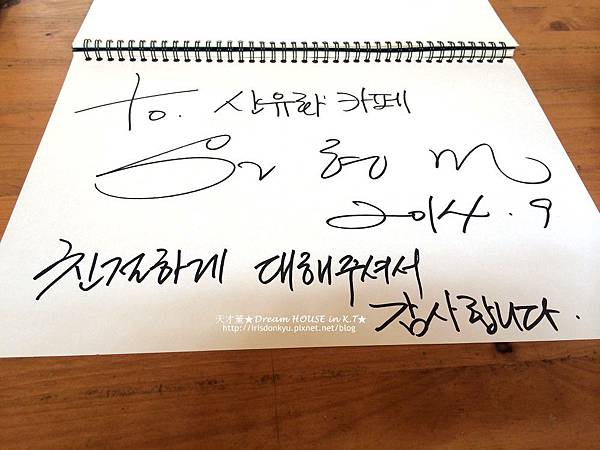 to. 산유화 카페
2014. 9
친절하게 대해주셔서
감사합니다.
★Dream HOUSE in K.T★
http://irisdonkyu.pixnet.net/blog